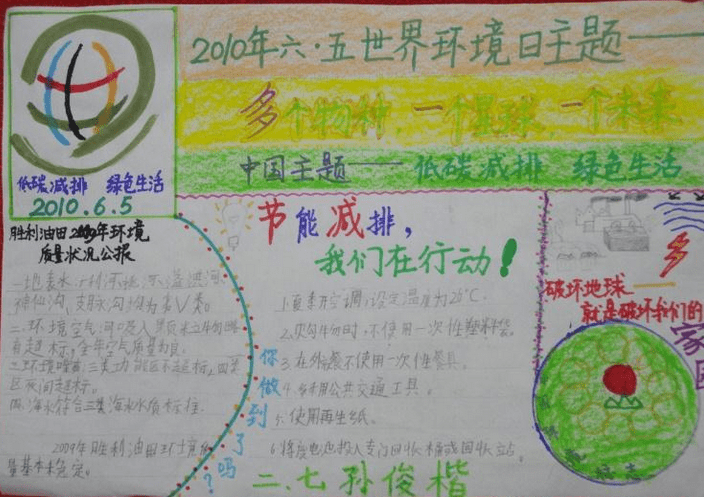 2010年六·五世界环境日主题——
多个物种,一个星球,一个未来
中国主题——低碳减排 绿色生活
低碳减排 绿色生活
2010.6.5
胜利油田2009年环境
质量状况公报
神仙沟、支脉沟均为劣V类。
二、环境空气
有超标,全年空气质量为良。
三、环境噪声:三类功能区不超标,四类
区夜间超标。
四、海水符合三类海水水质标准
2009年胜利油田环境质
量基本稳定。
节能减排,
我们在行动!
1.夏季空调设定温度为26℃。
2.购物时,不使用一次性塑料袋。
3.在外就餐不使用一次性餐具。
4.多利用公共交通工具。
5.使用再生纸。
6.将废电池投入专门回收桶或回收站。
你做到了吗?
二.七 孙俊楷
破坏地球——
就是破坏我们的
家园